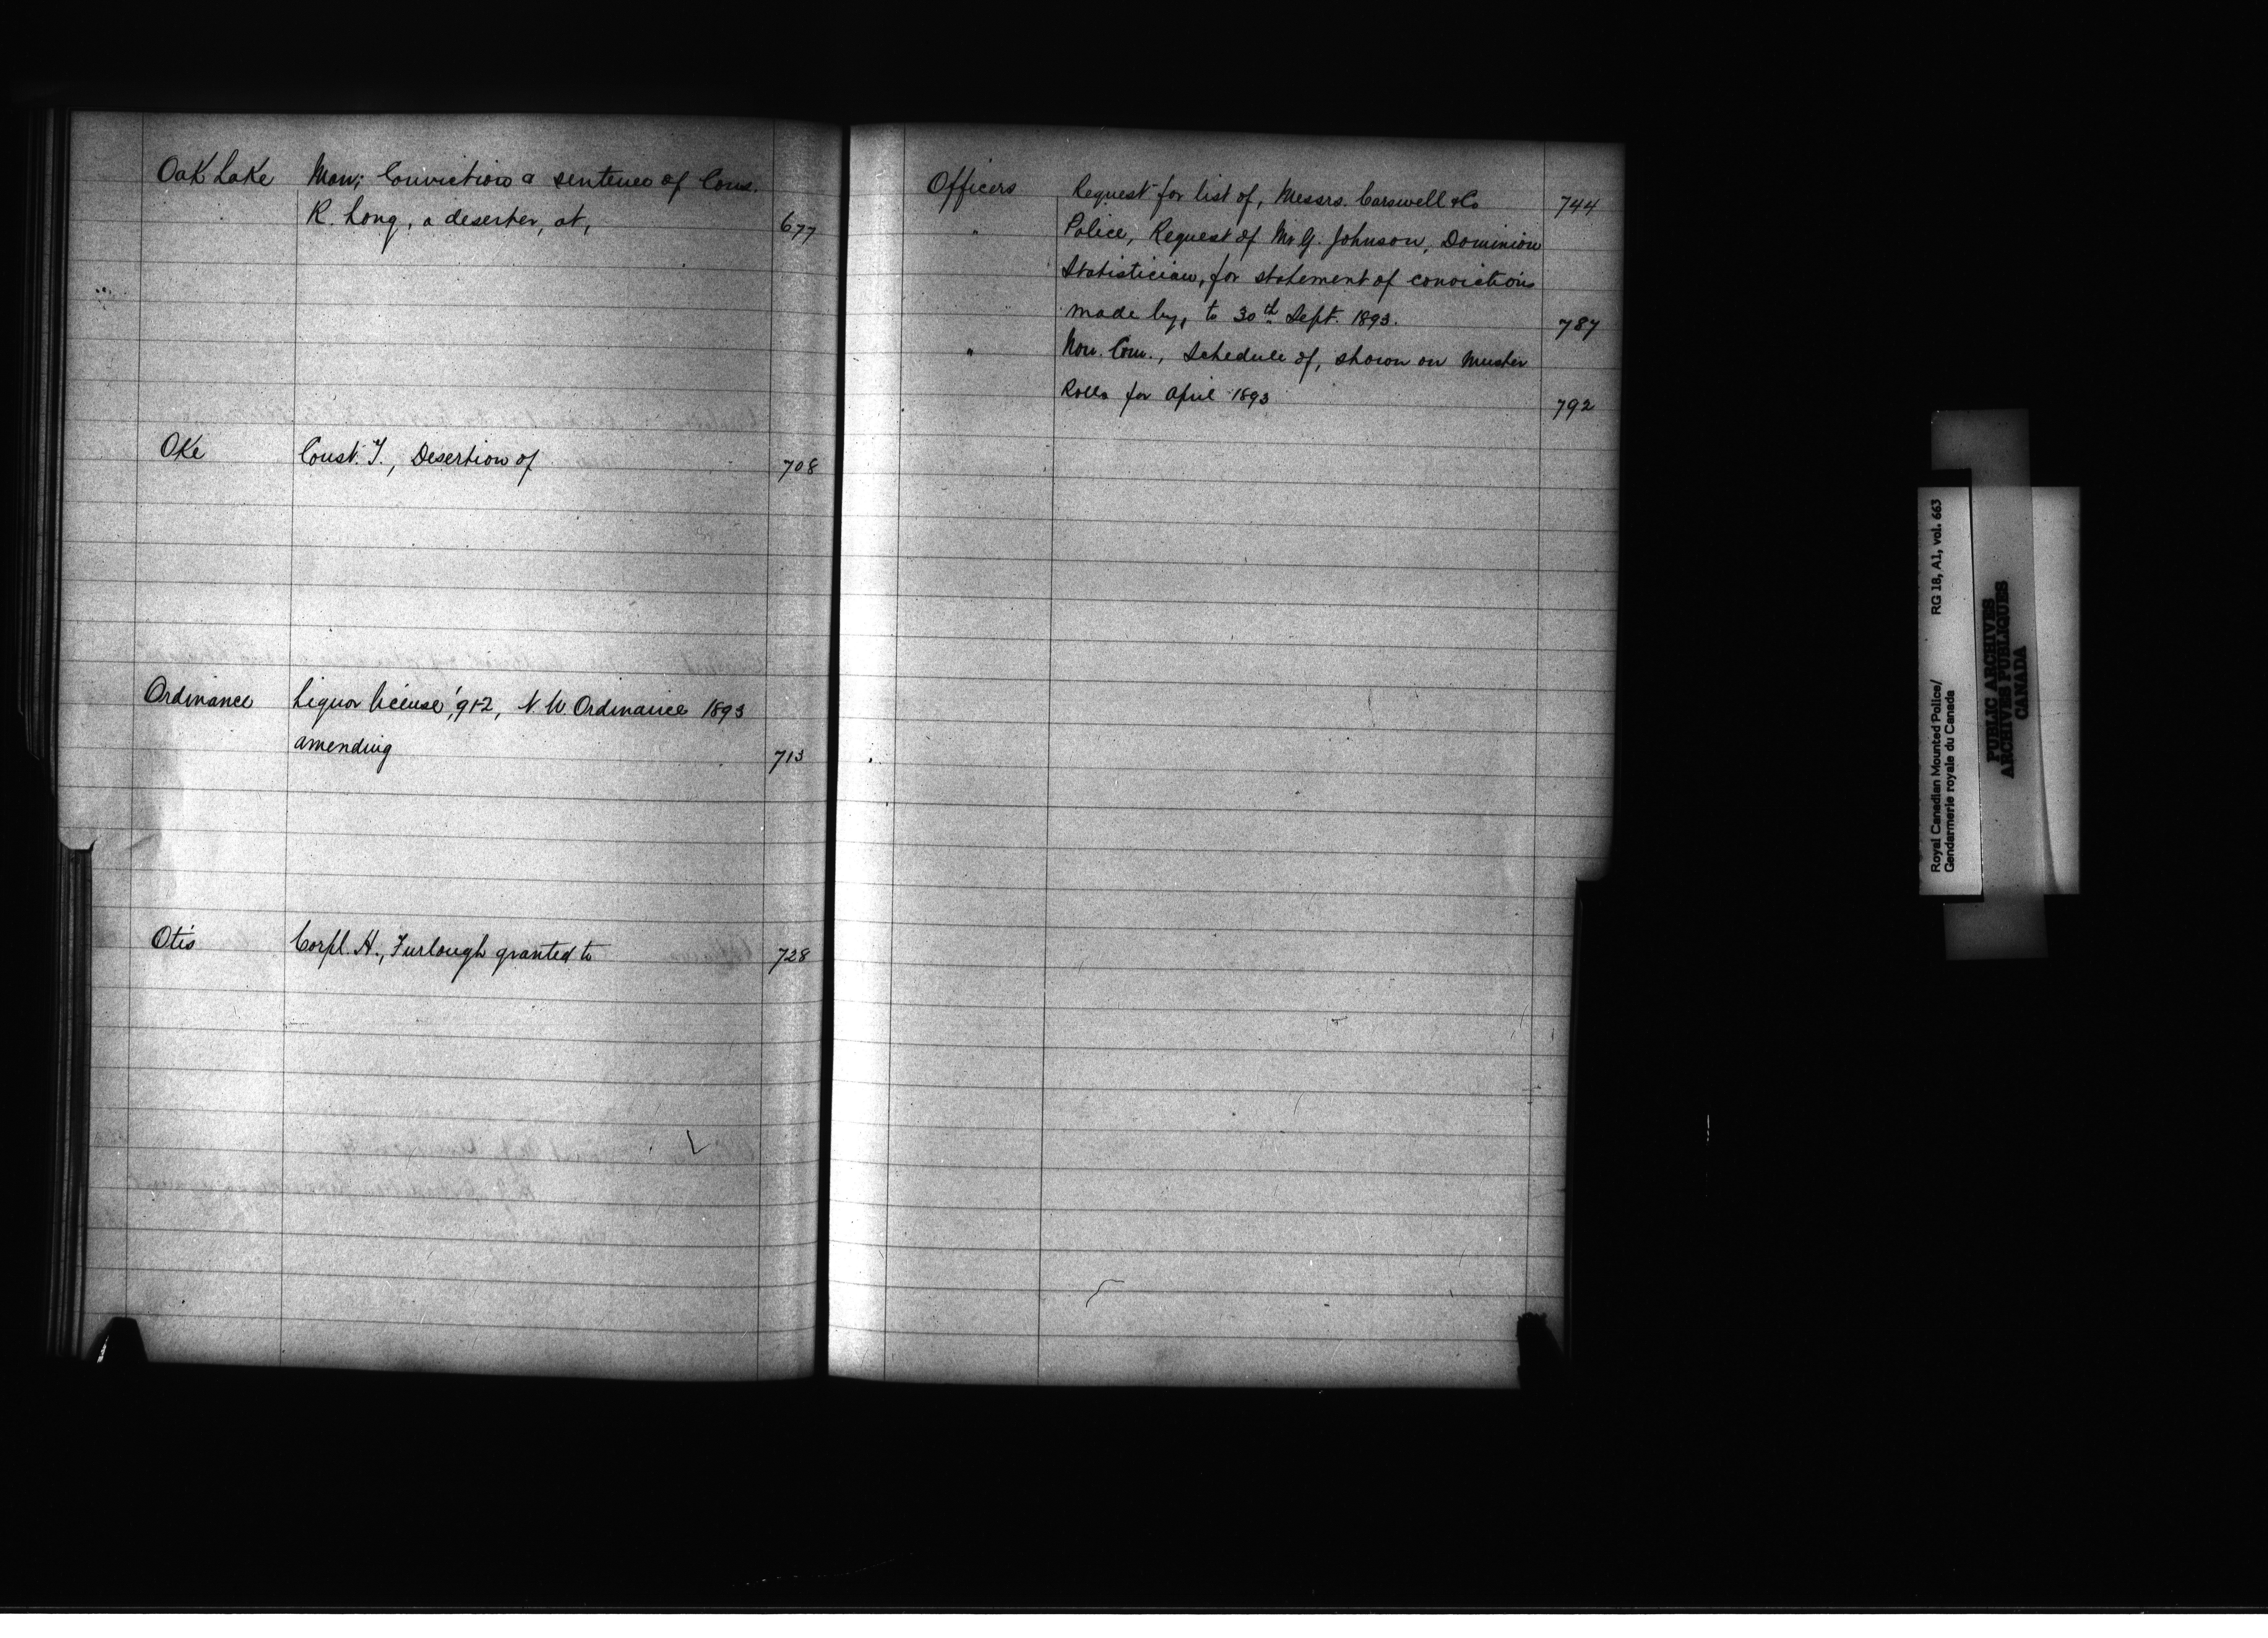 Oak Lake Man; Conviction & sentence of Cons.
R. Long, a deserter, at, 677
Oke Const. T., Desertion of 708
Ordinance Liquor license '91-2, N. W Ordinance 1893
amending 713
Otis Corpl. H., Furlough granted to 728
Officers Request for list of, Messrs. Carswell & Co 744
" Police, Request of Mr G. Johnson, Dominion
Statistician, for statement of convictions
made by, to 30th Sept. 1893. 787
" Non. Com., Schedule of, shown on Muster
Rolls for April 1893 792
Royal Canadian Mounted Police/ RG 18, A1, vol. 663
Gendarmerie royale du Canada
PUBLIC ARCHIVES
ARCHIVES PUBLIQUES
CANADA